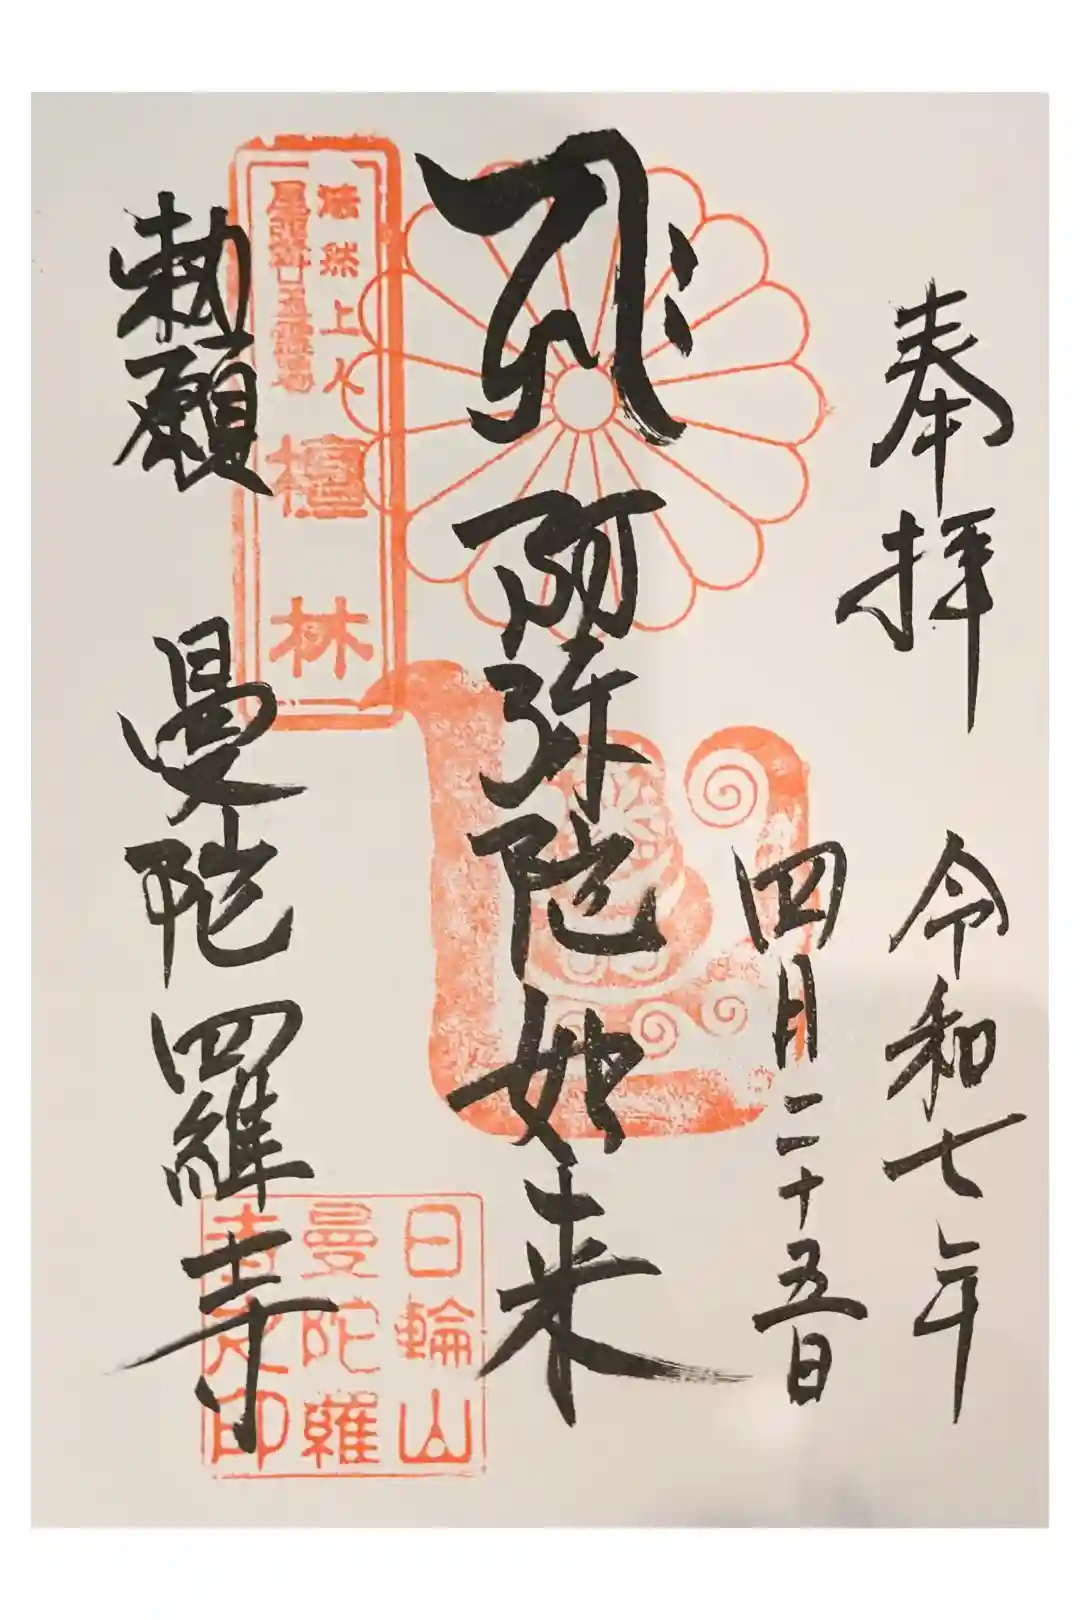 奉拝
令和七年
四月二十五日
阿弥陀如来
法然上人
尾張廿五霊場
檀林
勅願
曼陀羅寺
日輪山
曼陀羅
寺之印